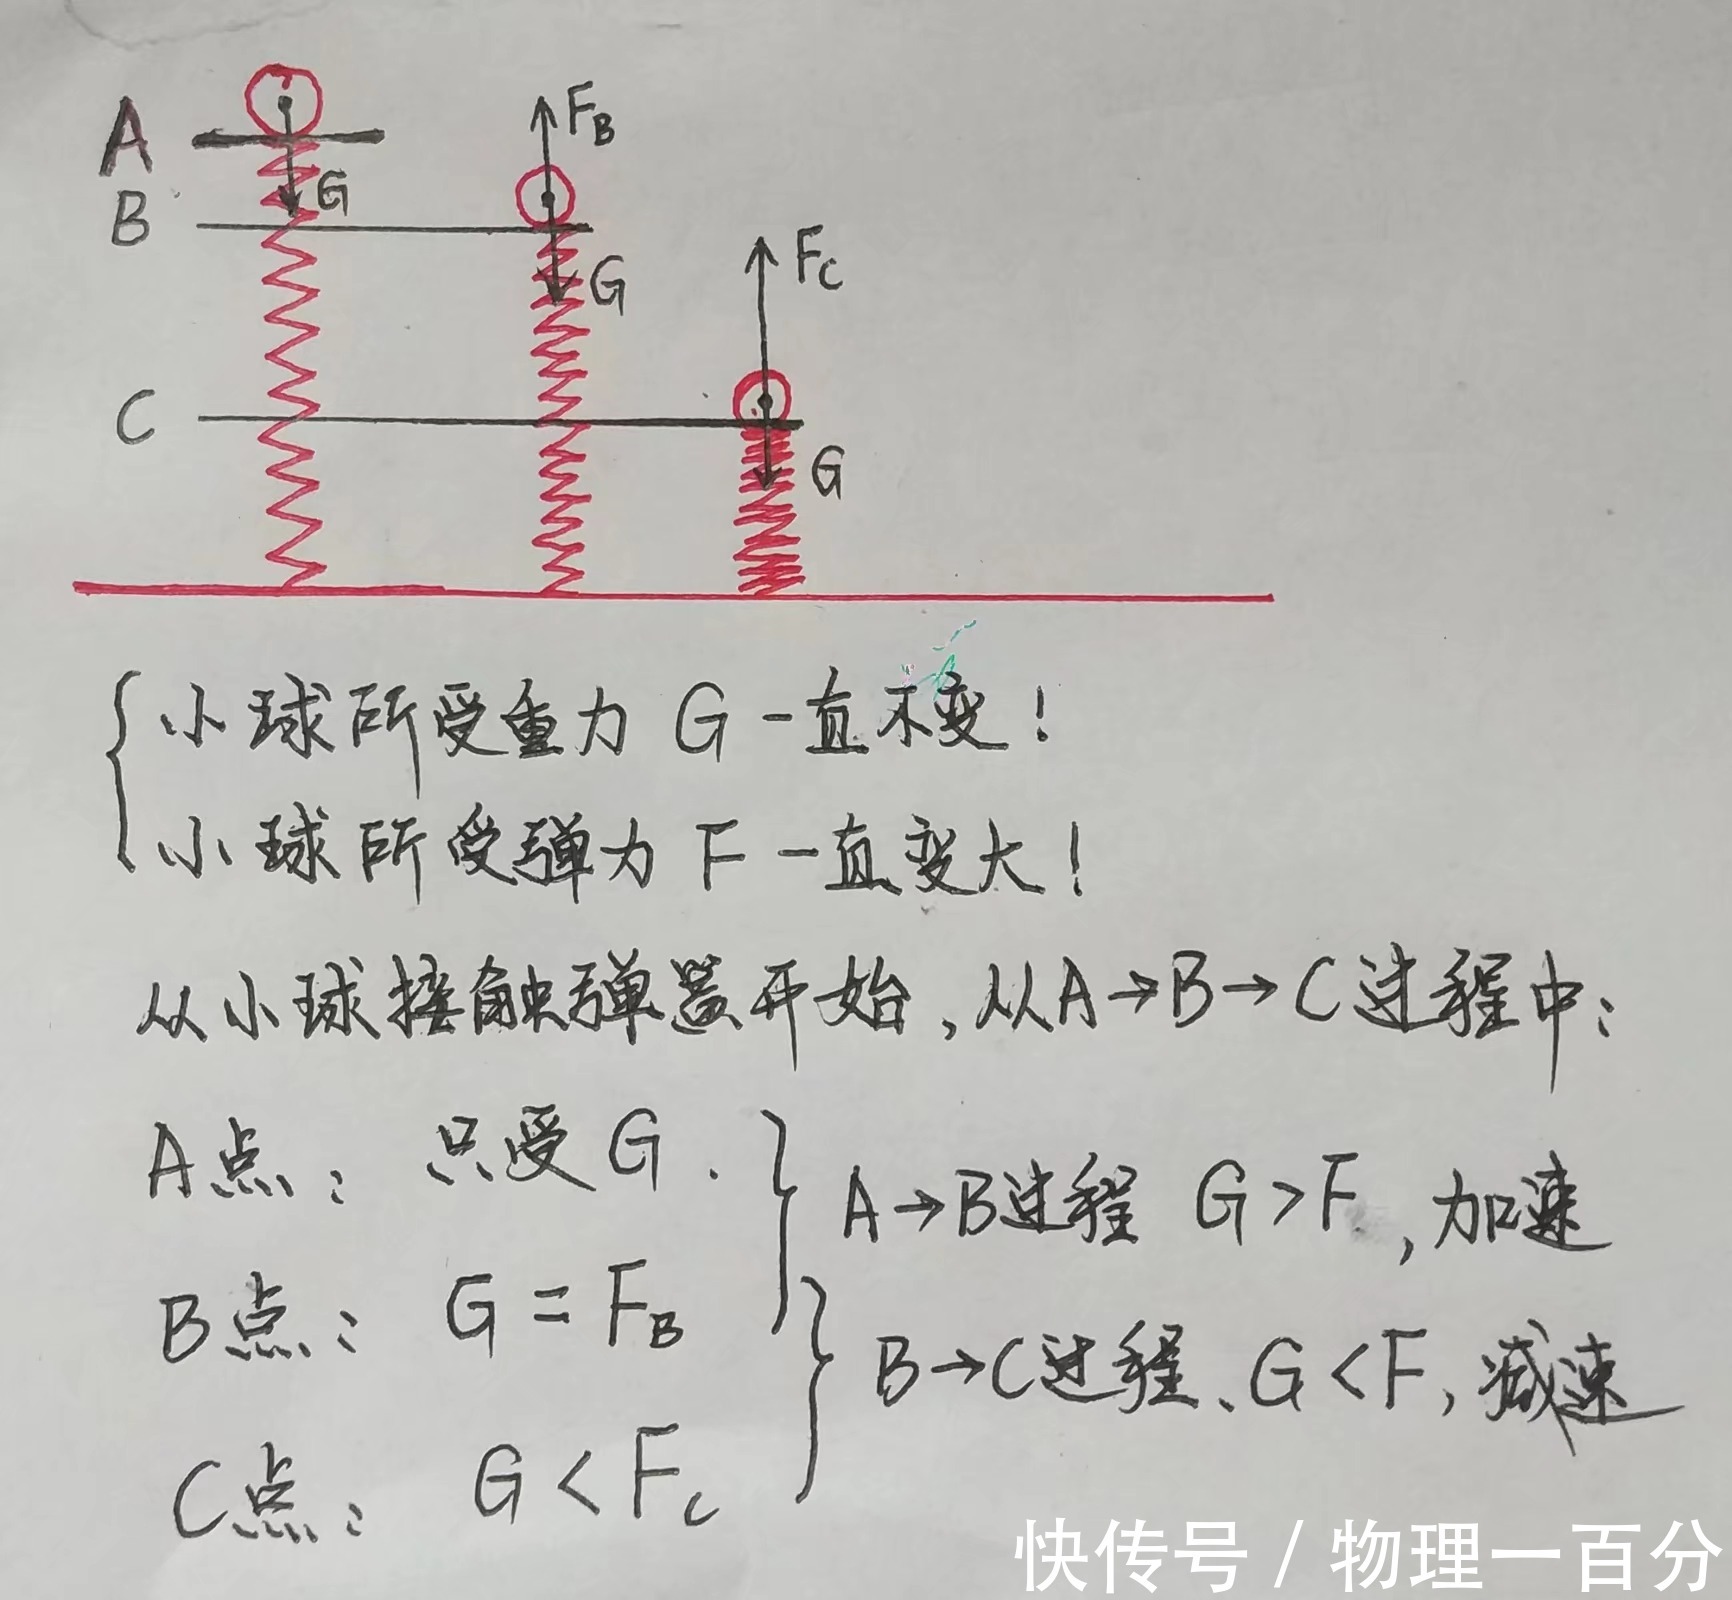 A
G
B
F_B
G
C
F_C
G
小球所受重力 G 一直不变！
小球所受弹力 F 一直变大！
从小球接触弹簧开始，从A→B→C过程中：
A点：只受G．
A→B过程 G＞F，加速
B点：G＝F_B
B→C过程、G＜F，减速
C点：G＜F_C
快传号 / 物理一百分